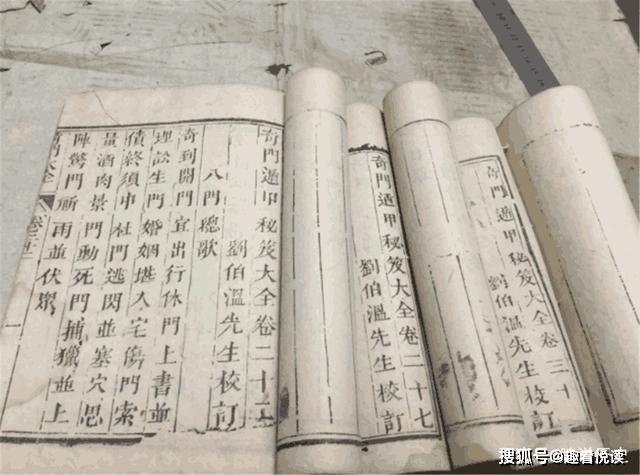 奇門遁甲秘笈大全卷二十
劉伯溫先生校訂
八門總歌
奇到開門宜出行休門上書並
理訟生門婚姻堪入宅傷門索
債終須中杜門逃閃並塞穴思
量酒肉景門動死門捕獵並上
陣驚門祈雨並伏眾
大全
一
奇門遁甲秘笈大全卷二十七
劉伯溫先生校訂
奇門遁甲秘笈大全卷三十
劉伯溫先生校訂
搜狐号@趣着悦读